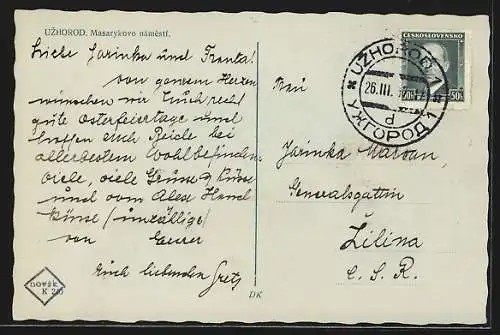 UŽHOROD. Masarykovo náměstí.
Liebe Jarinka und Franta!
von ganzem Herzen
wünschen wir Euch recht
gute Osterfeiertage und
hoffen euch Beide bei
allerbestem Wohlbefinden
viele, viele Grüsse & Küsse
und vom Alex Hand
küsse /unzählige/
von Eurer
Euch liebenden Gretl
novák
K
DK
ČESKOSLOVENSKO
50h 50h
UŽHOROD 1
26.III.
d
УЖГОРОД 1
Frau
Jarinka
Generalsgattin
Žilina
Č.S.R.